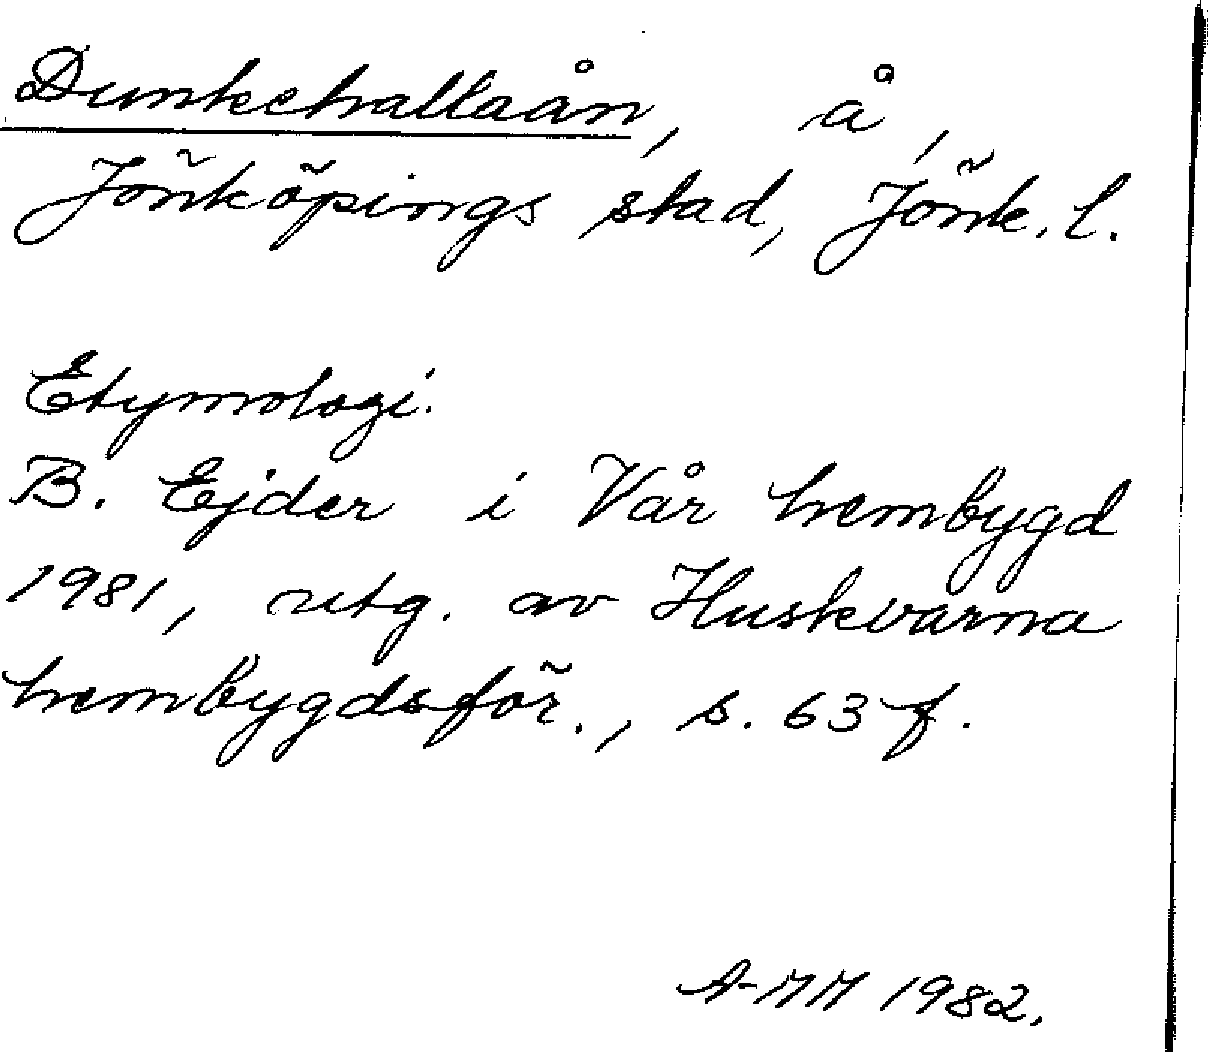 Dunkehallaån, å,
Jönköpings stad, Jönk. l.
Etymologi.
B. Ejder i Vår hembygd
1981, utg. av Huskvarna
hembygdsför., s. 63 f.
A-MM 1982.